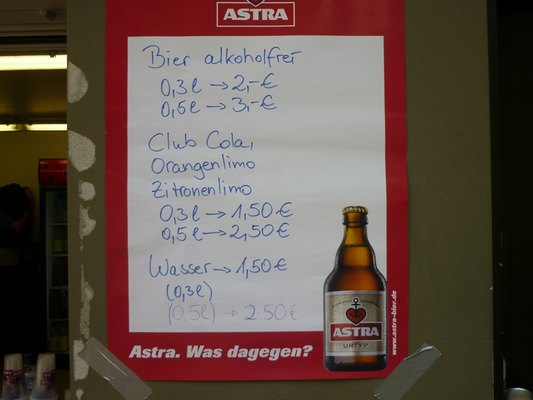 ASTRA
Bier alkoholfrei
0,3l → 2,-€
0,5l → 3,-€
Club Cola,
Orangenlimo
Zitronenlimo
0,3l → 1,50€
0,5l → 2,50€
Wasser → 1,50€
(0,3l)
(0,5l) → 2.50€
ASTRA
URTYP
Astra. Was dagegen?
www.astra-bier.de